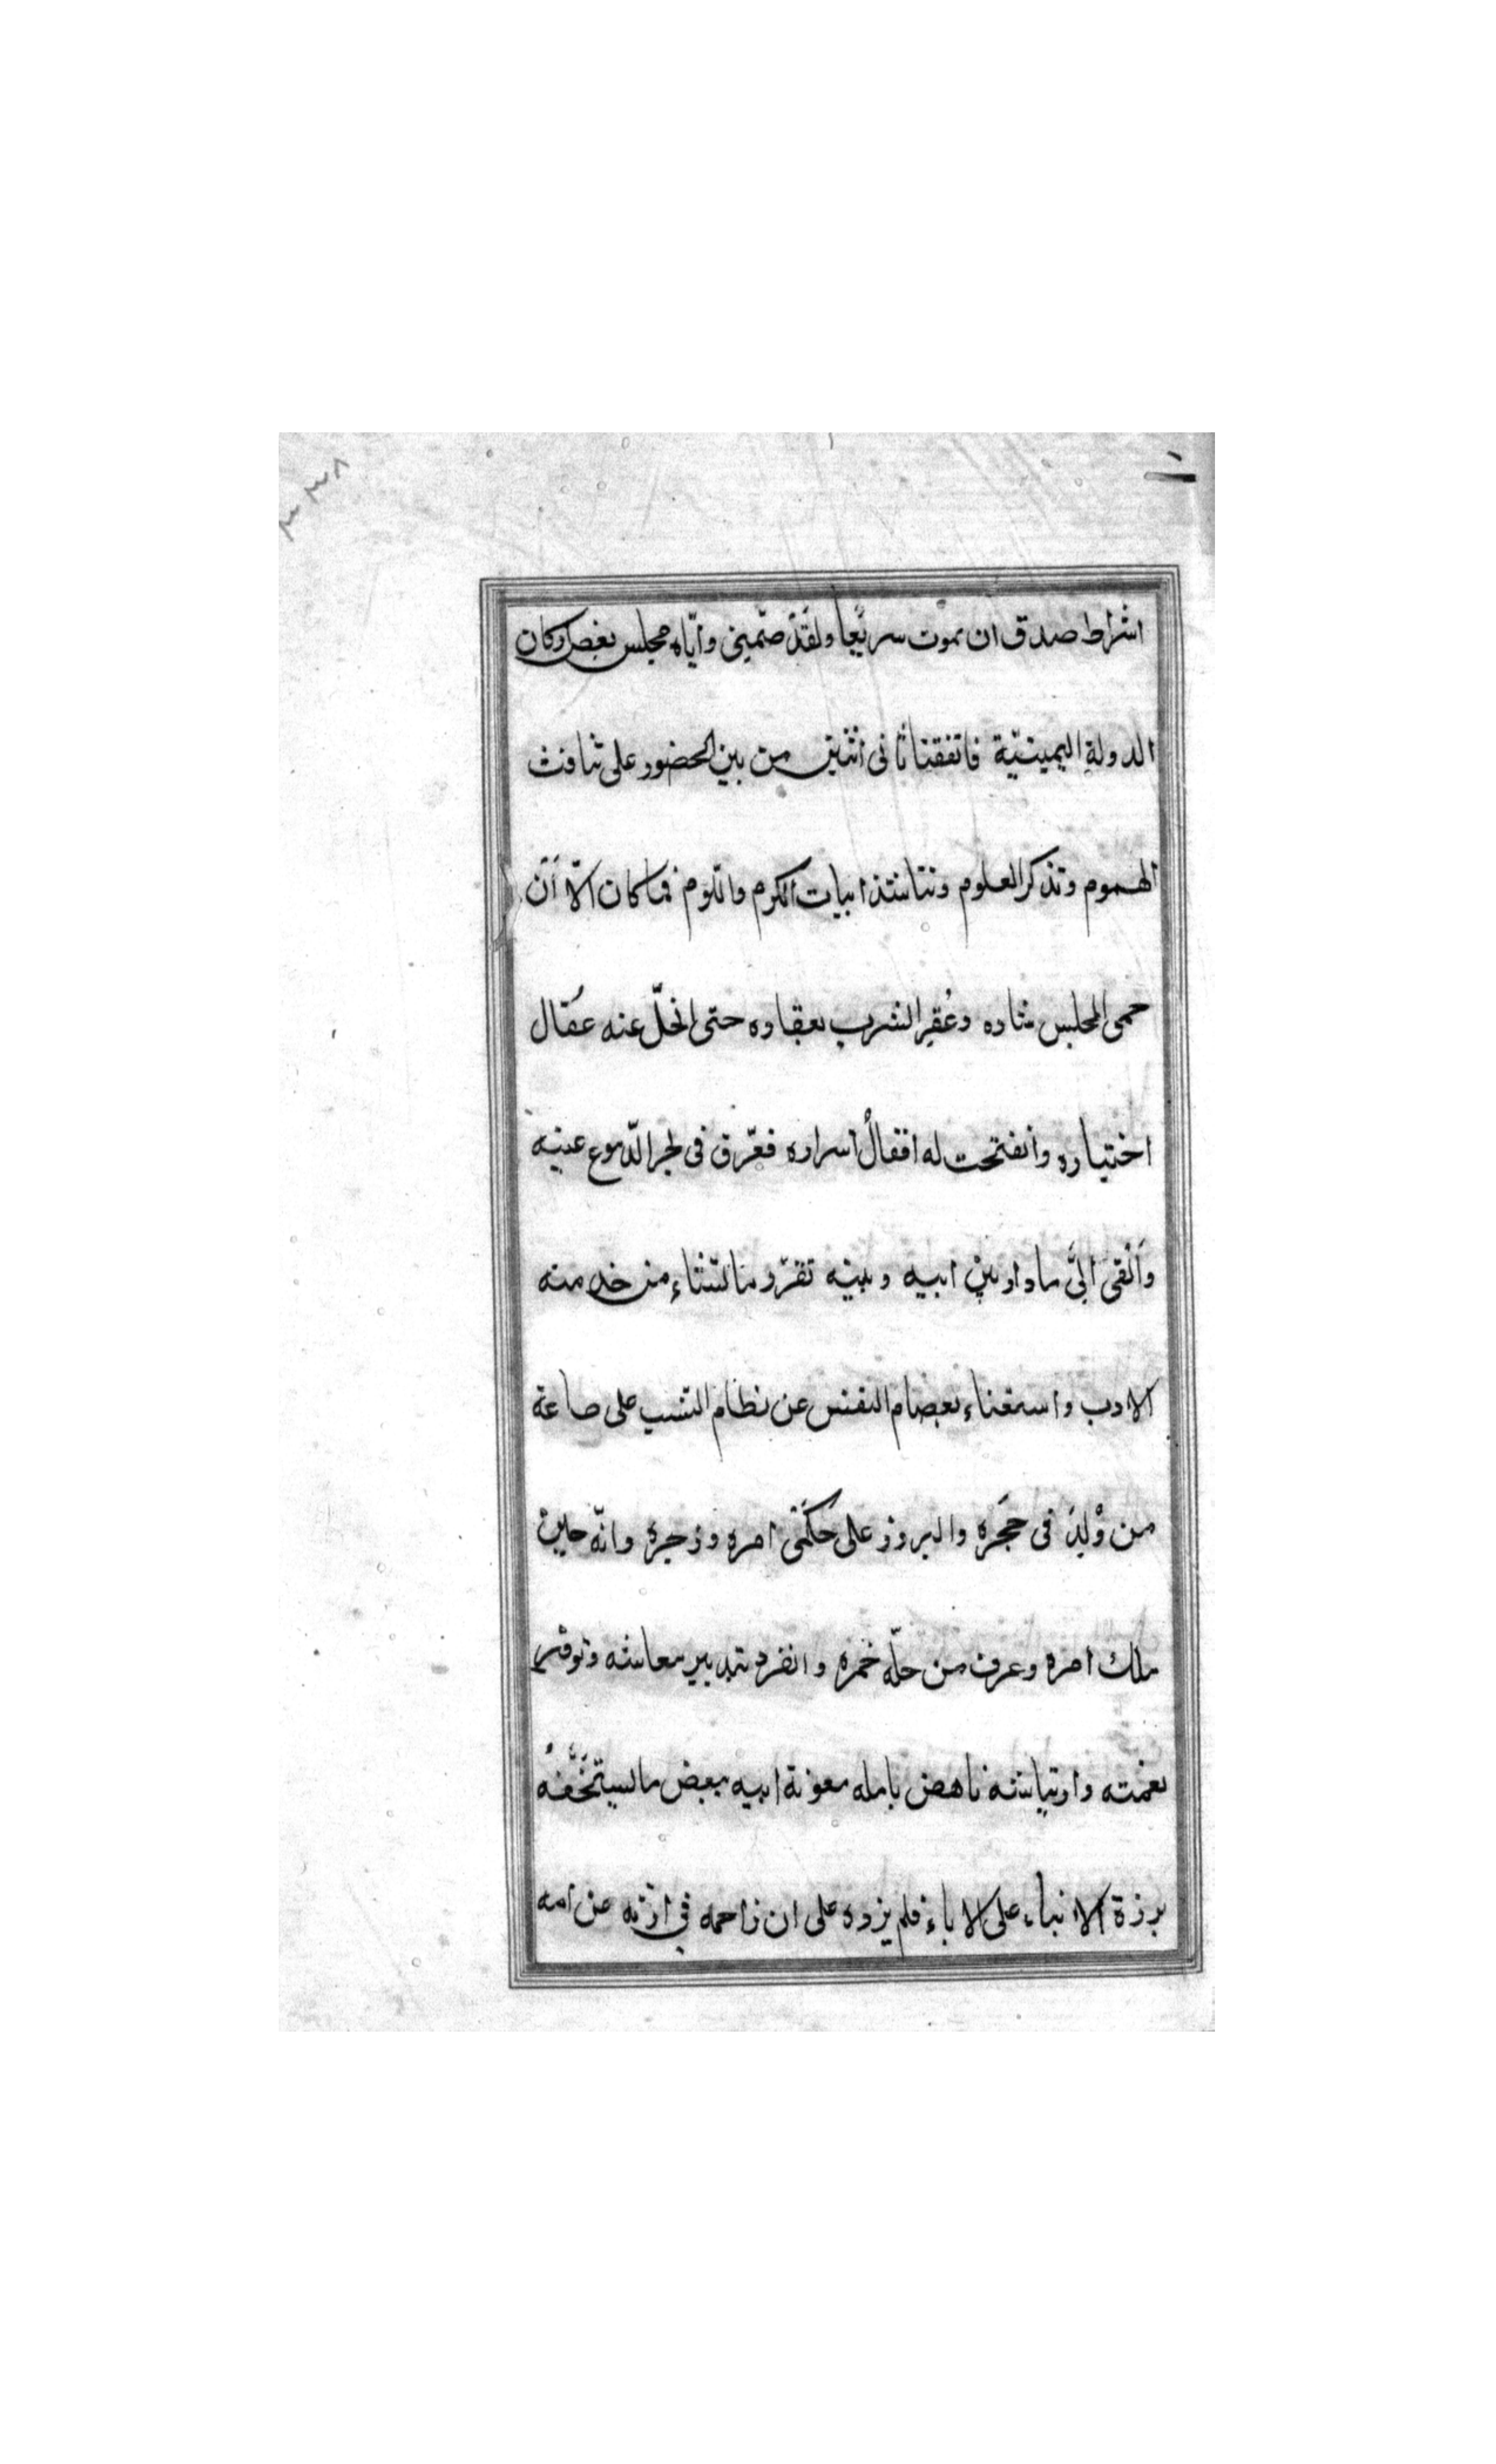 ٣٣٨
اشراط صدق ان يموت سريعا ولقد ضمّني وايّاه مجلس بعض اركان
الدولة اليمينيّة فاتفقنا ثانى اثنين من بين الحضور على تنافث
الهموم وتذكر العلوم ونتناشد ابيات الكرم واللوم فما كان الّا أن
حمى المجلس بناره وعُقِر الشرب بعقاره حتى انحلّ عنه عقال
اختياره وانفتحت له اقفالُ اسراره فغرّق فى لجر الدّموع عينيه
وَأَلْقى الىَّ ما دار بين ابيه وبينه تفرّد بالثناء من خدمته
الادب واستغناء بعصام النفس عن نظام النسب على طاعة
من وُلِدَ فى حَجره والبروز على حكمَىْ امره وزجره وانّه حين
ملك امره وعرف من حلّه خمره وانفرد بتدبير معاشه وتوفير
نعمته وارتياشه ناهض بامله معونة ابيه ببعض ما يستخفّفُه
برزة الانباء على الاباء فلم يزده على ان زاحمه فى ارثه عن امه